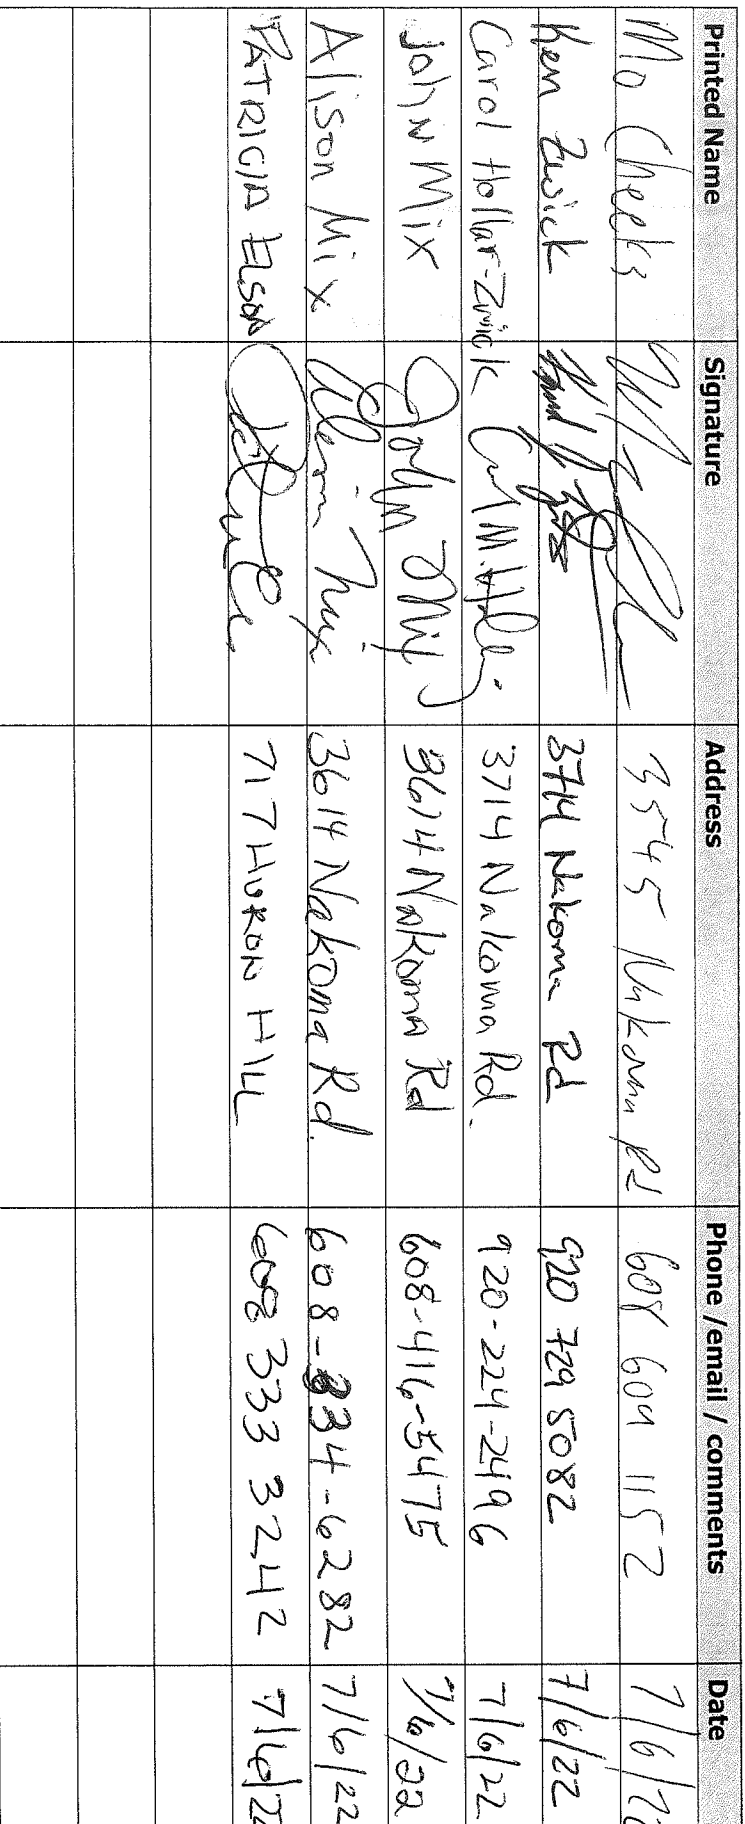 Printed Name Signature Address Phone / email / comments Date
Mo Cheeks 3545 Nakoma Rd 608 609 1152 7/6/2
Ken Zwick 3714 Nakoma Rd 920 729 5082 7/6/22
Carol Hollar-Zwick 3714 Nakoma Rd. 920-224-2496 7/6/22
John Mix John Mix 3614 Nakoma Rd 608-416-5475 7/6/22
Alison Mix Alison Mix 3614 Nakoma Rd. 608-334-6282 7/6/22
PATRICIA ELSON 717 HURON HILL 608 333 3242 7/6/2